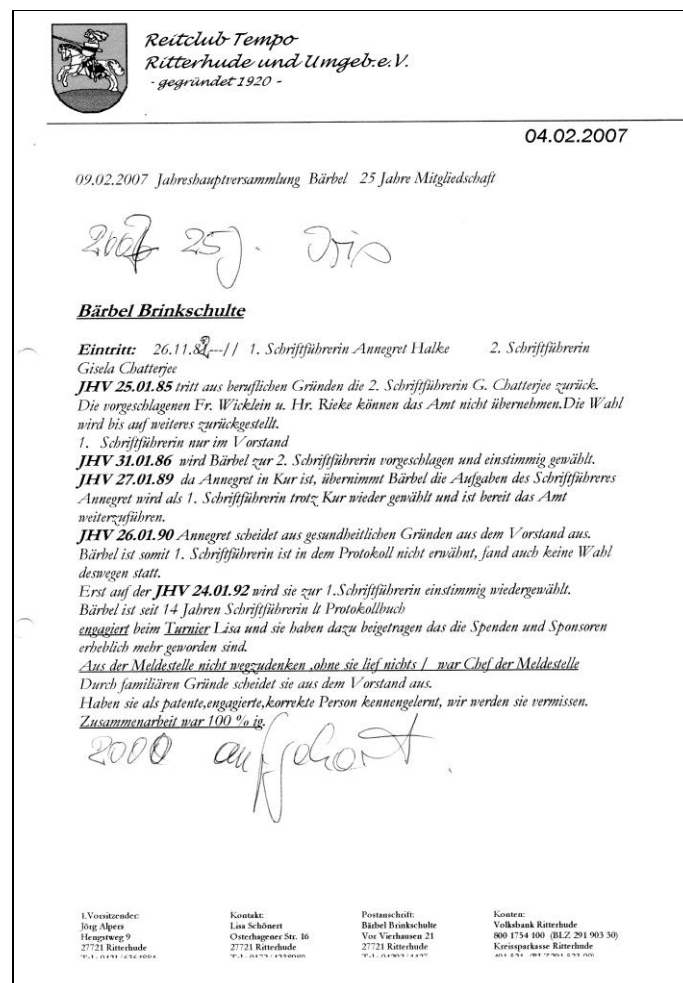 Reitclub Tempo
Ritterhude und Umgeb.e.V.
- gegründet 1920 -
04.02.2007
09.02.2007 Jahreshauptversammlung Bärbel 25 Jahre Mitgliedschaft
25 J. Iris
Bärbel Brinkschulte
Eintritt: 26.11.82---// 1. Schriftführerin Annegret Halke 2. Schriftführerin
Gisela Chatterjee
JHV 25.01.85 tritt aus beruflichen Gründen die 2. Schriftführerin G. Chatterjee zurück.
Die vorgeschlagenen Fr. Wicklein u. Hr. Rieke können das Amt nicht übernehmen.Die Wahl
wird bis auf weiteres zurückgestellt.
1. Schriftführerin nur im Vorstand
JHV 31.01.86 wird Bärbel zur 2. Schriftführerin vorgeschlagen und einstimmig gewählt.
JHV 27.01.89 da Annegret in Kur ist, übernimmt Bärbel die Aufgaben des Schriftführeres
Annegret wird als 1. Schriftführerin trotz Kur wieder gewählt und ist bereit das Amt
weiterzuführen.
JHV 26.01.90 Annegret scheidet aus gesundheitlichen Gründen aus dem Vorstand aus.
Bärbel ist somit 1. Schriftführerin ist in dem Protokoll nicht erwähnt, fand auch keine Wahl
deswegen statt.
Erst auf der JHV 24.01.92 wird sie zur 1.Schriftführerin einstimmig wiedergewählt.
Bärbel ist seit 14 Jahren Schriftführerin lt Protokollbuch
engagiert beim Turnier Lisa und sie haben dazu beigetragen das die Spenden und Sponsoren
erheblich mehr geworden sind.
Aus der Meldestelle nicht wegzudenken ,ohne sie lief nichts / war Chef der Meldestelle
Durch familiären Gründe scheidet sie aus dem Vorstand aus.
Haben sie als patente,engagierte,korrekte Person kennengelernt, wir werden sie vermissen.
Zusammenarbeit war 100 % ig.
2000 aufgehört.
1.Vorsitzender: Kontakt: Postanschrift: Konten:
Jörg Alpers Lisa Schönert Bärbel Brinkschulte Volksbank Ritterhude
Hengstweg 9 Osterhagener Str. 16 Vor Vierhausen 21 800 1754 100 (BLZ 291 903 30)
27721 Ritterhude 27721 Ritterhude 27721 Ritterhude Kreissparkasse Ritterhude